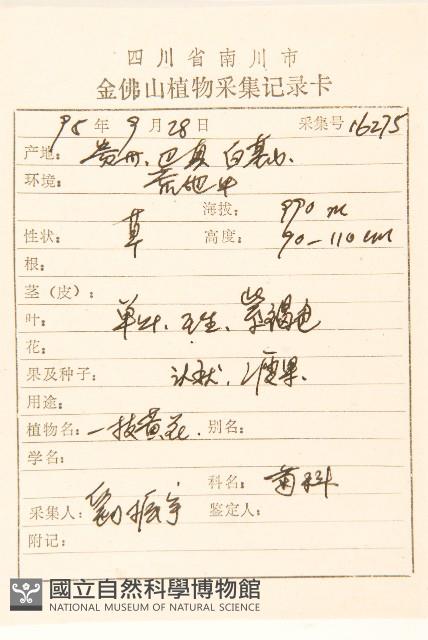 四川省南川市
金佛山植物采集记录卡
95年9月28日 采集号 16275
产地: 贵州.
环境: 荒地中
海拔: 990 m
性状: 草 高度: 90-110 cm
根:
茎(皮):
叶: 单叶、互生、紫褐色
花:
果及种子: 瘦果.
用途:
植物名: 一枝黄花. 别名:
学名:
科名: 菊科
采集人: 劉振宇 鉴定人:
附记:
國立自然科學博物館
NATIONAL MUSEUM OF NATURAL SCIENCE